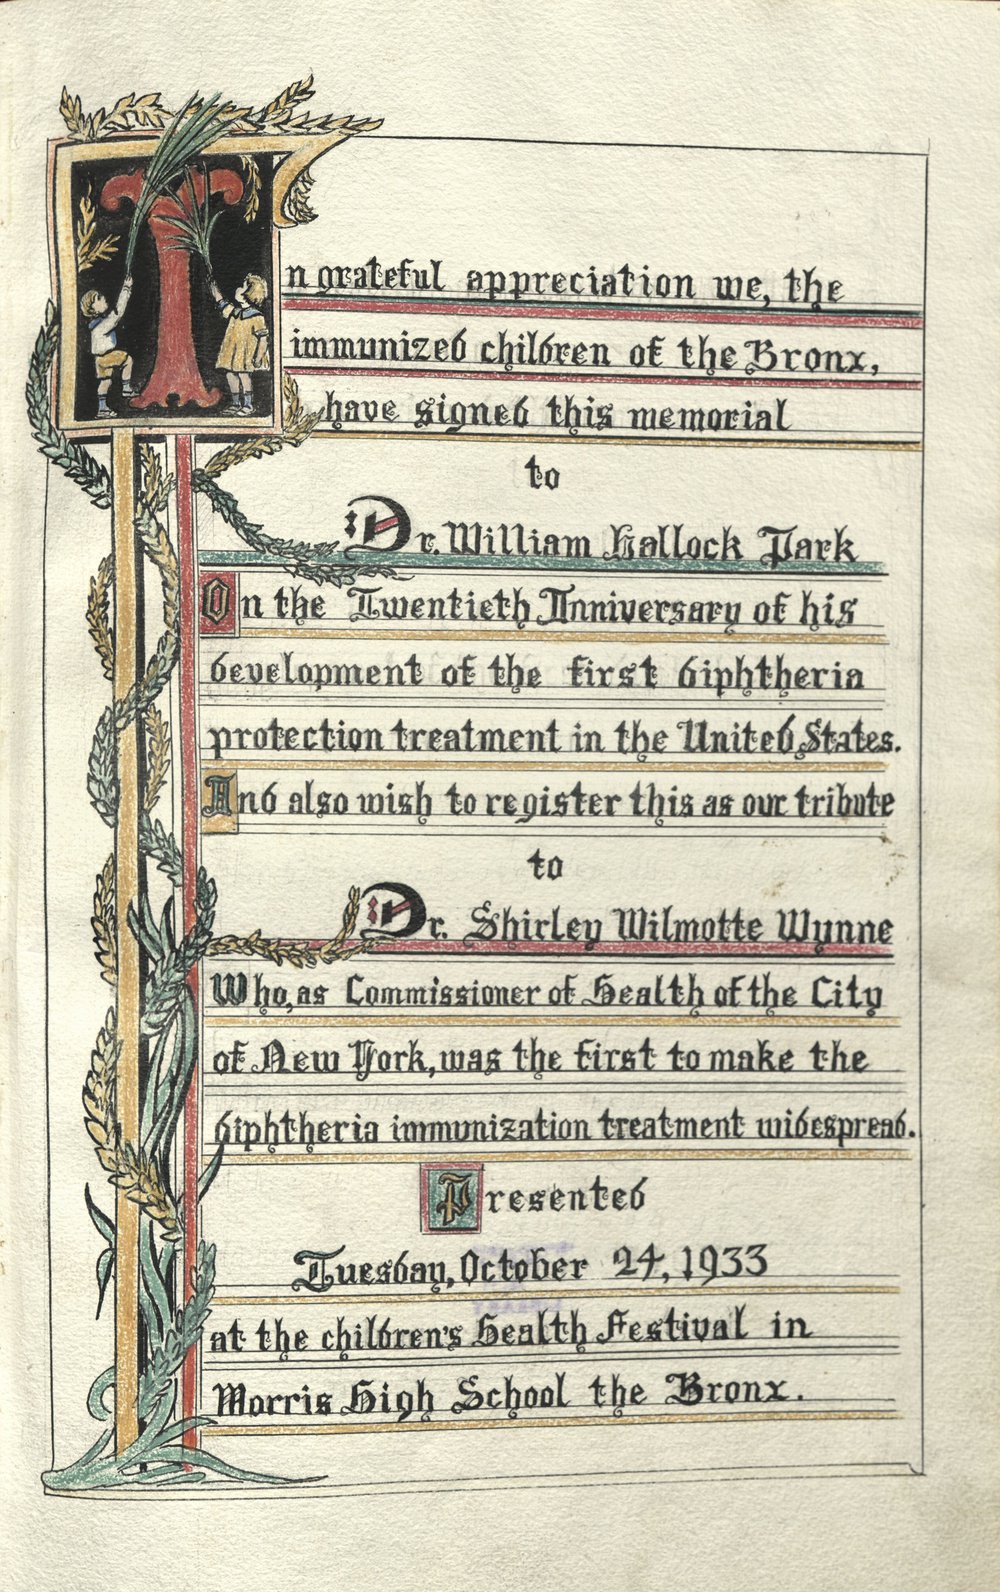 In grateful appreciation we, the
immunized children of the Bronx,
have signed this memorial
to
Dr. William Hallock Park
On the Twentieth Anniversary of his
development of the first diphtheria
protection treatment in the United States.
And also wish to register this as our tribute
to
Dr. Shirley Wilmotte Wynne
Who, as Commissioner of Health of the City
of New York, was the first to make the
diphtheria immunization treatment widespread.
Presented
Tuesday, October 24, 1933
at the children's Health Festival in
Morris High School the Bronx.